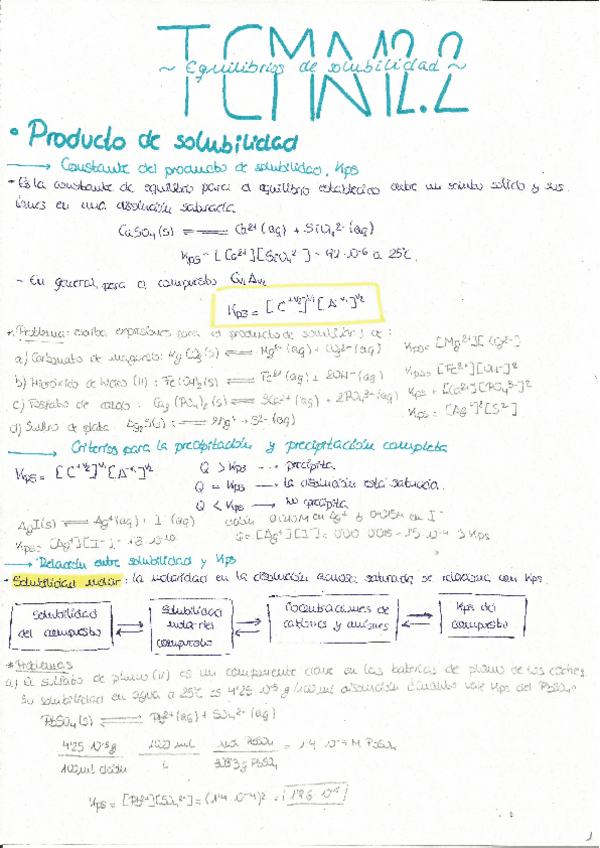 TEMA 12.2
~ Equilibrios de solubilidad ~
• Producto de solubilidad
→ Constante del producto de solubilidad, Kps
- Es la constante de equilibrio para el equilibrio establecido entre un soluto sólido y sus
iones en una disolución saturada
CaSO₄(s) ⇌ Ca²⁺(aq) + SO₄²⁻(aq)
Kps = [Ca²⁺][SO₄²⁻] = 9'1·10⁻⁶ a 25°C.
- En general, para el compuesto
Kps = [C⁺ᵛ²]ᵛ¹[A⁻ᵛ¹]ᵛ²
* Problema: escriba expresiones para el producto de solubilidad de:
a) Carbonato de magnesio: Mg CO₃(s) ⇌ Mg²⁺(aq) + CO₃²⁻(aq) Kps = [Mg²⁺][CO₃²⁻]
b) Hidróxido de hierro (II): Fe(OH)₂(s) ⇌ Fe²⁺(aq) + 2OH⁻(aq) Kps = [Fe²⁺][OH⁻]²
c) Fosfato de calcio: Ca₃(PO₄)₂(s) ⇌ 3Ca²⁺(aq) + 2PO₄³⁻(aq)
d) Sulfuro de plata: Ag₂S(s) ⇌ 2Ag⁺ + S²⁻(aq) Kps = [Ag⁺]²[S²⁻]
→ Criterios para la precipitación y precipitación completa
Kps = [C⁺ᵛ²]ᵛ¹[A⁻ᵛ¹]ᵛ² Q > Kps → precipita
Q = Kps → la disolución está saturada.
Q < Kps → no precipita
AgI(s) ⇌ Ag⁺(aq) + I⁻(aq) en Ag⁺ en I⁻
Kps = [Ag⁺][I⁻] Q = [Ag⁺][I⁻] = > Kps
→ Relación entre solubilidad y Kps
- Solubilidad molar: la molaridad en la disolución acuosa saturada se relaciona con Kps.
Solubilidad del compuesto ⇌ Solubilidad molar del compuesto ⇌ Concentraciones de cationes y aniones ⇌ Kps del compuesto
* Problemas
a) El sulfato de plomo (II) es un componente clave en las baterías de plomo de los coches
Su solubilidad en agua a 25°C es 4'25·10⁻³ g/100ml disolución ¿Cuánto vale Kps del PbSO₄?
PbSO₄(s) ⇌ Pb²⁺(aq) + SO₄²⁻(aq)
4'25·10⁻³g 1000 ml 1mol PbSO₄ = 1'4·10⁻⁴ M PbSO₄
100ml disón L 303'3g PbSO₄
Kps = [Pb²⁺][SO₄²⁻] = (1'4·10⁻⁴)² = 1'96·10⁻⁸
1